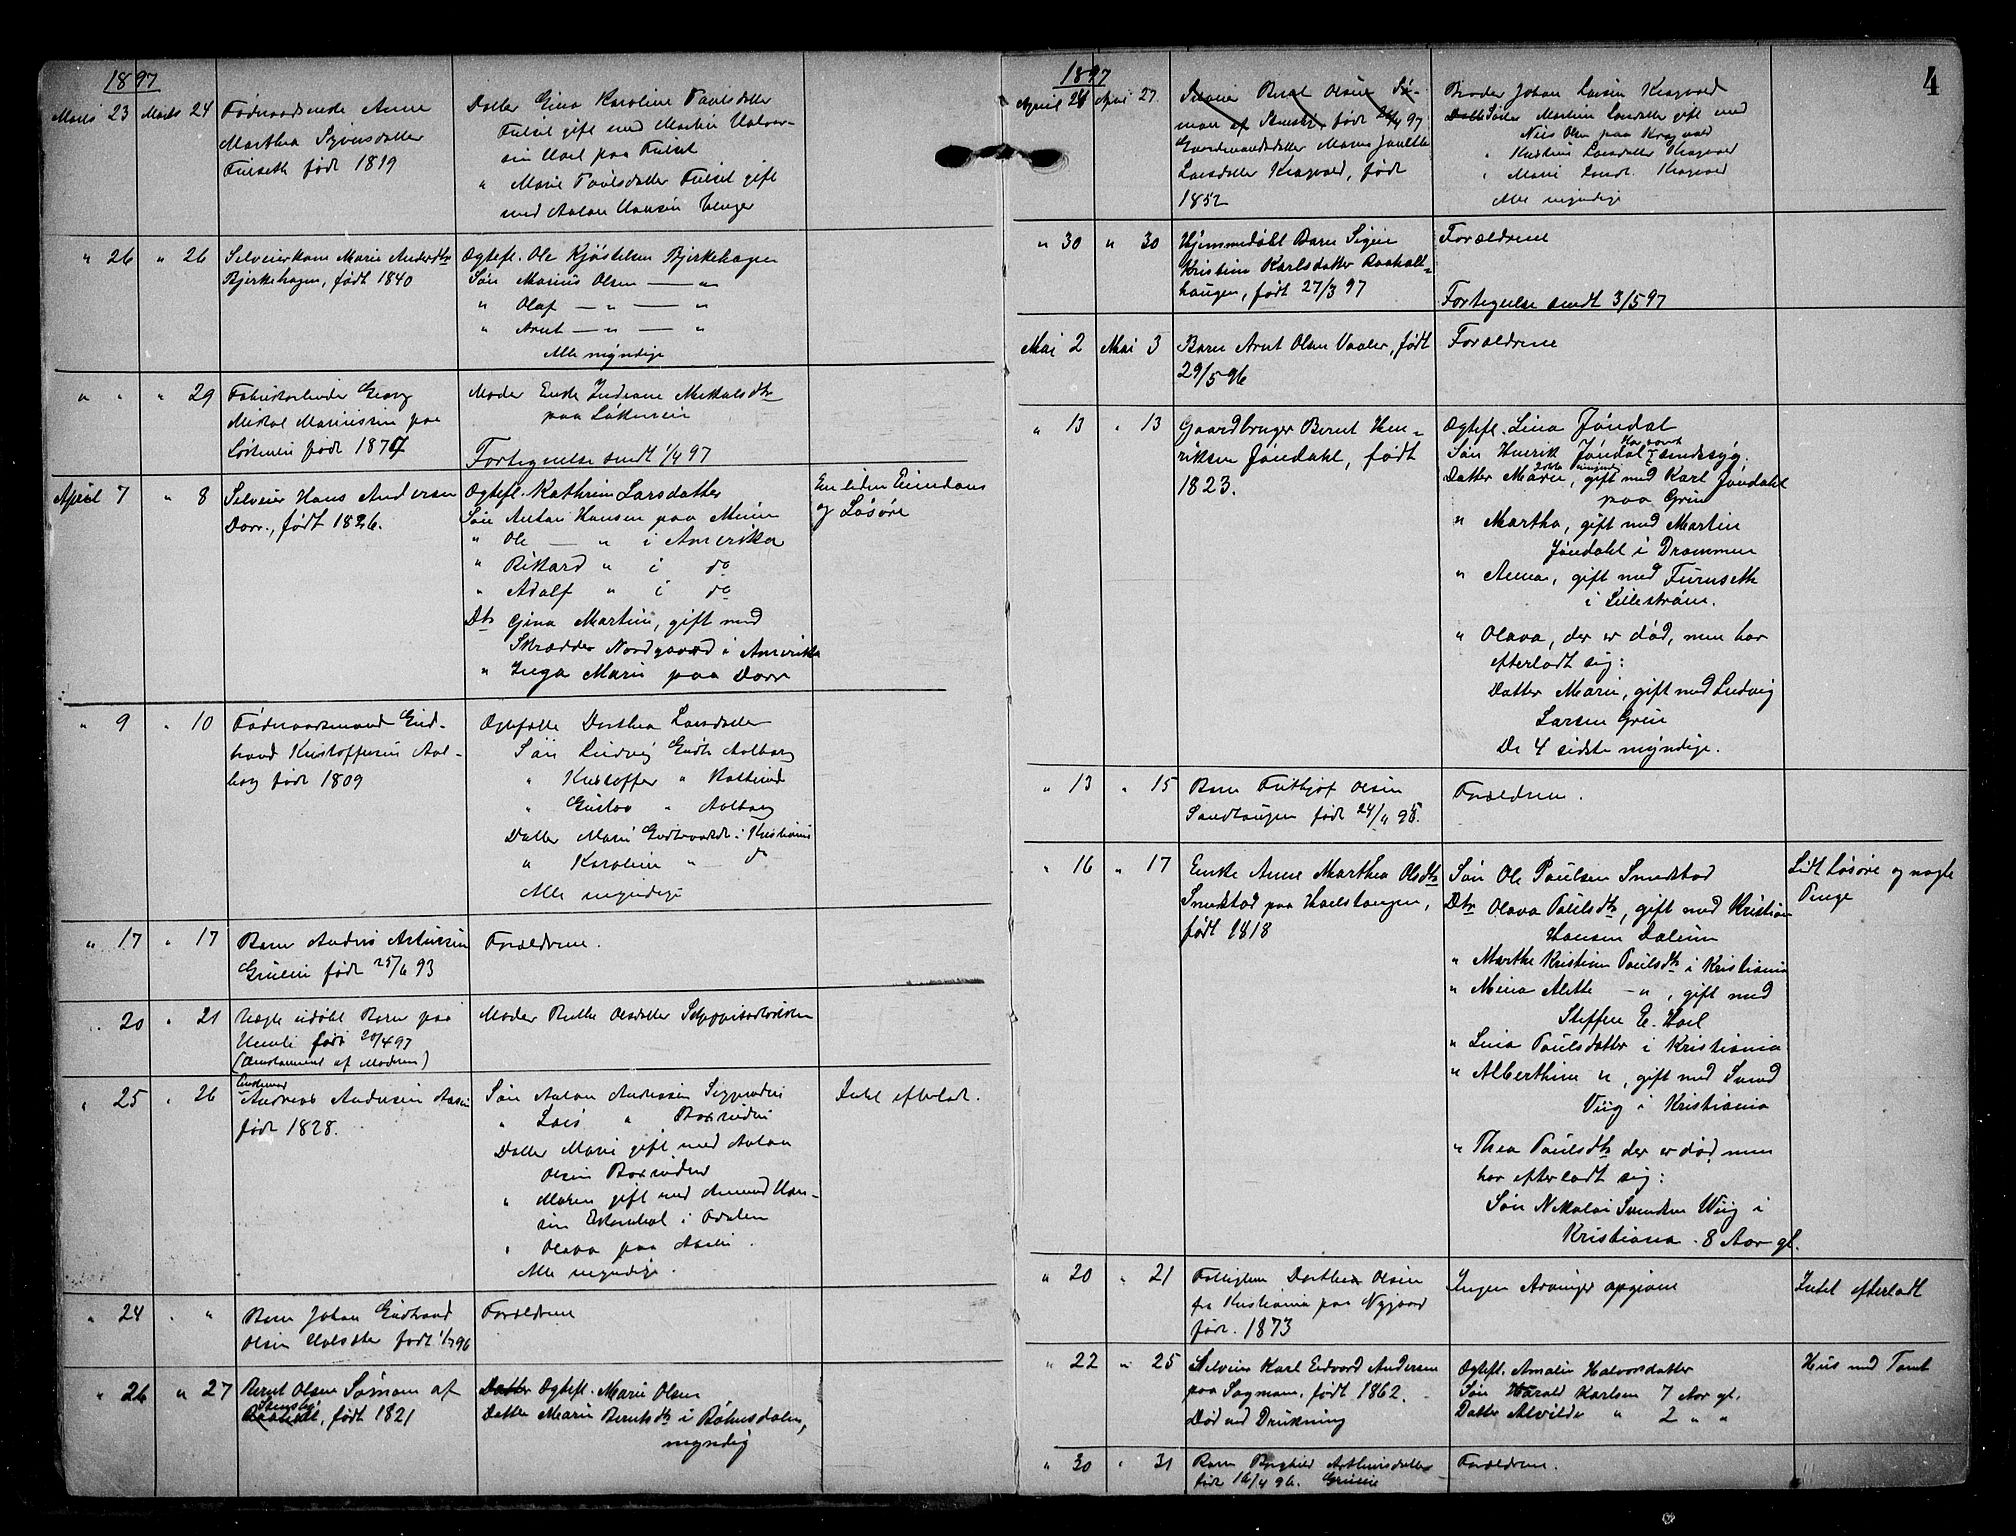 1897
Marts 23 Marts 24 Føderaadsenke Anne
Marthea Syversdatter
Fulseth født 1819
Datter Gina Karoline Paulsdatter
Fulset gift med Martin Halvor-
sen Hoel paa Fulset
" Marie Paulsdatter Fulset gift
med Anton Hansen
" 26 " 26 Selveierkone Marie Andersdtr
Bjerkehagen, født 1840
Ogtefl. Ole Kjøstelsen Bjerkehagen
Søn Marius Olsen — "
" Olaf — " — "
" Arnt — " — "
Alle myndige
" " " 29 Fabrikarbeider Georg
Mikal Mariussen paa
født 1877
Moder Enke Indiane Mikkelsdtr
paa
Fortegnelse sendt 1/4 97
April 7 " 8 Selveier Hans Andersen
Dorr., født 1826.
Ogtefl. Kathrine Larsdatter
Søn Anton Hansen paa
" Ole — " i Amerika
" Rikard " i do
" Adolf " i do
Dtr Gina Martine, gift med
Skrædder Nordgaard i Amerika
" Inga Marie paa Dorr
En liden Eiendom
og Løsøre
" 9 " 10 Føderaadsmand Gud-
brand Kristoffersen Aal-
borg født 1809
Ogtefælle Dorthea Larsdatter
Søn Ludvig Gudb. Aalborg
" Kristoffer "
" Gustav " Aalborg
Datter Marie Gudbrandsdt. i Kristiania
" Karoline " — do
Alle myndige
" 17 " 17 Barn Anders Artursen
født 25/6 93
Forældrene.
" 20 " 21 Nægte udøbt Barn paa
født 20/4 97
( af Moderen)
Moder Olsdatter
" 25 " 26
Andreas Andersen
født 1828.
Søn Anton Andreassen
" Lars "
Datter Marie gift med Anton
Olsen
" Maren gift med Amund Han-
sen i Odalen
" Olava paa
Alle myndige.
Intet efterladt.
" 24 " " Barn Johan Gudbrand
Olsen født 1/7 96
Forældrene
" 26 " 27 Bernt Olsen Sømoen af
født 1821
Datter Ogtefl. Marie Olsen
Datter Marie Berntsdtr i
myndig
4
1897
April 24 April 27 Bernt Olsen Sø-
moen af født 97
Gaardmandsdatter Maren
Larsdatter Kragvold, født
1852
Broder Johan Larsen Kragvold
Datt Søster Martine Larsdatter gift med
Nils Olsen paa Kragvold
" Kristine Larsdatter Kragvold
" Marie Larsdt. Kragvold
Alle myndige
" 30 " 30 Hjemmedøbt Barn Signe
Kristine Karlsdatter Raaholt-
haugen, født 27/3 97
Forældrene
Fortegnelse sendt 3/5 97
Mai 2 Mai 3 Barn Arnt Olsen Vaaler, født
29/5 96
Forældrene
" 13 " 13 Gaardbruger Bernt Hen-
riksen Jøndahl, født
1823.
Ogtefl. Lina Jøndal
Søn Henrik Jøndal sindssyg.
Datter Marie, gift med Karl Jøndahl
paa Grin
" Martha, gift med Martin
Jøndahl i Drammen
" Anna, gift med Furuseth
i Lillestrøm.
" Olava, der er død, men har
efterladt sig:
Datter Marie, gift med Ludvig
Larsen Grin
De 4 sidste myndige.
" 13 " 15 Barn Frithjof Olsen
født 24/11 95.
Forældrene.
" 16 " 17 Enke Anne Marthea Olsdtr
Smedstad paa Hoelstangen,
født 1818
Søn Ole Paulsen Smedstad
Dtr Olava Paulsdtr, gift med Kristian
Hansen Dalum
" Marthe Kristine Paulsdtr i Kristiania
" Mina Alette — ", gift med
Steffen E. Hoel
" Lina Paulsdatter i Kristiania
" Alberthine ", gift med Svend
Viig i Kristiania
" Thea Paulsdtr der er død, men
har efterladt sig:
Søn Nikolai Svendsen Wiig i
Kristiania. 8 Aar gl.
Lidt Løsøre og nogle
Penge
" 20 " 21 Dorthea Olsen
fra Kristiania paa Nygaard
født. 1873
Ingen Arvinger opgivne
Intet efterladt
" 22 " 25 Selveier Karl Edvard Andersen
paa Sagmoen, født 1862.
Død ved Drukning
Ogtefl. Amalie Halvorsdatter
Søn Harald Karlsen 7 Aar gl.
Datter Alvilde " 2 " "
Hus med Tomt
" 30 " 31 Barn Borghild Arthursdatter
født 16/4 96.
Forældrene.